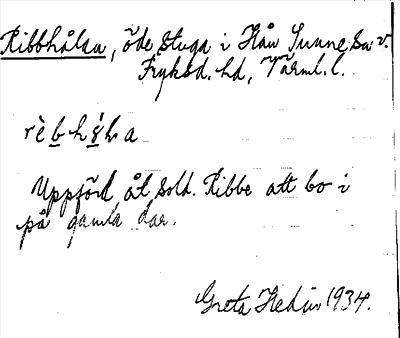 Ribbhålan, öde stuga i Hån Sunne sn v.
Fryksd. hd, Värml. l.
rèbhɣ́lra
Uppförd åt sold. Ribbe att bo i
på gamla dar.
Greta Hedin 1934.